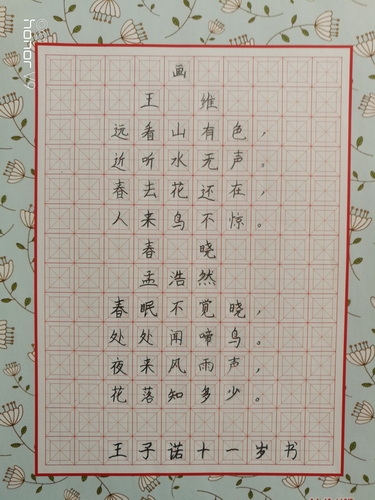 画
王 维
远看山有色，
近听水无声。
春去花还在，
人来鸟不惊。
春 晓
孟浩然
春眠不觉晓，
处处闻啼鸟。
夜来风雨声，
花落知多少。
王子诺十一岁书
honor V9